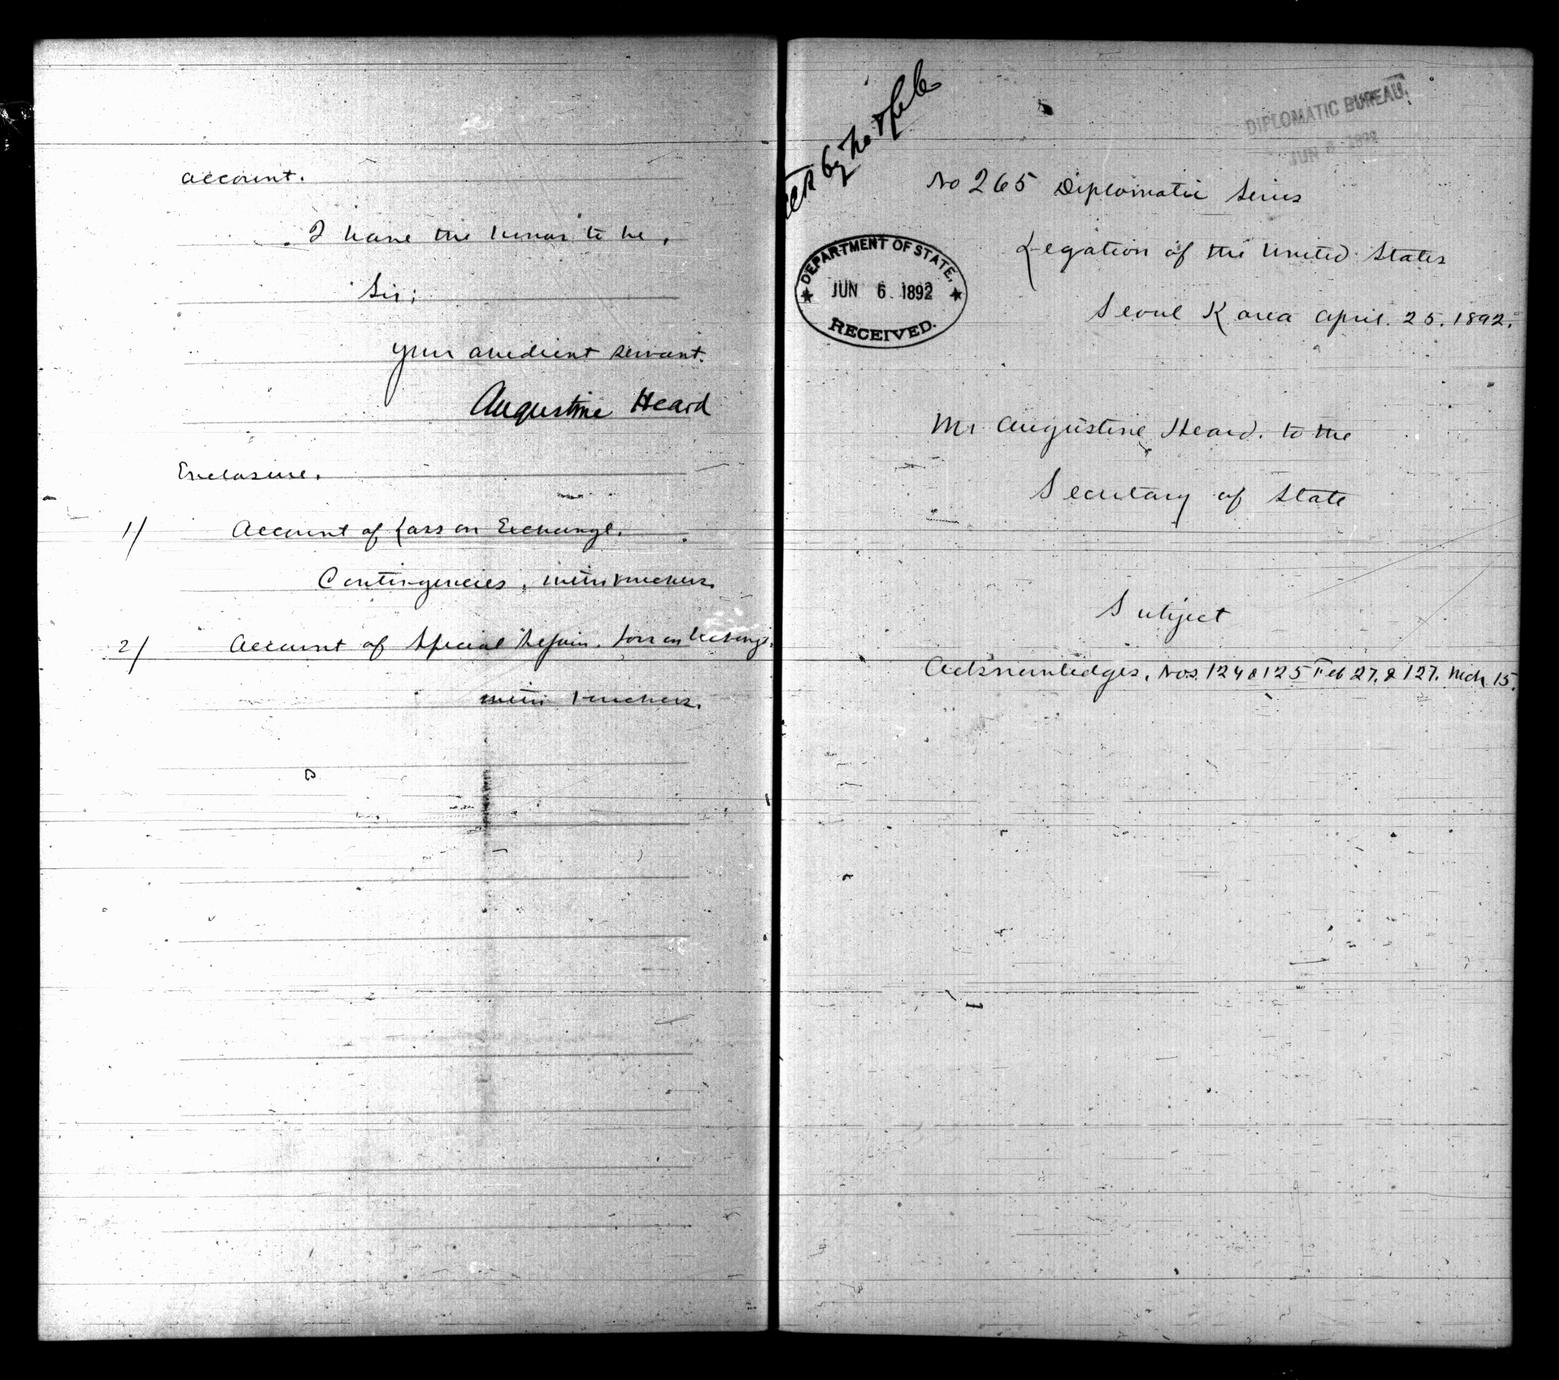 account.
I have the honor to be,
Sir;
Your obedient servant.
Augustine Heard
Enclosure.
1/ Account of Loss on Exchange.
Contingencies, with vouchers.
2/ Account of Special Repair. Loss on Exchange.
with vouchers.
by
DIPLOMATIC BUREAU,
JUN 6 1892
No 265 Diplomatic Series
Legation of the United States
Seoul Korea April. 25. 1892.
DEPARTMENT OF STATE,
JUN 6. 1892
RECEIVED.
Mr Augustine Heard. to the
Secretary of State
Subject
Acknowledges, Nos. 124 & 125 Feb 27. & 127. Mch 15.